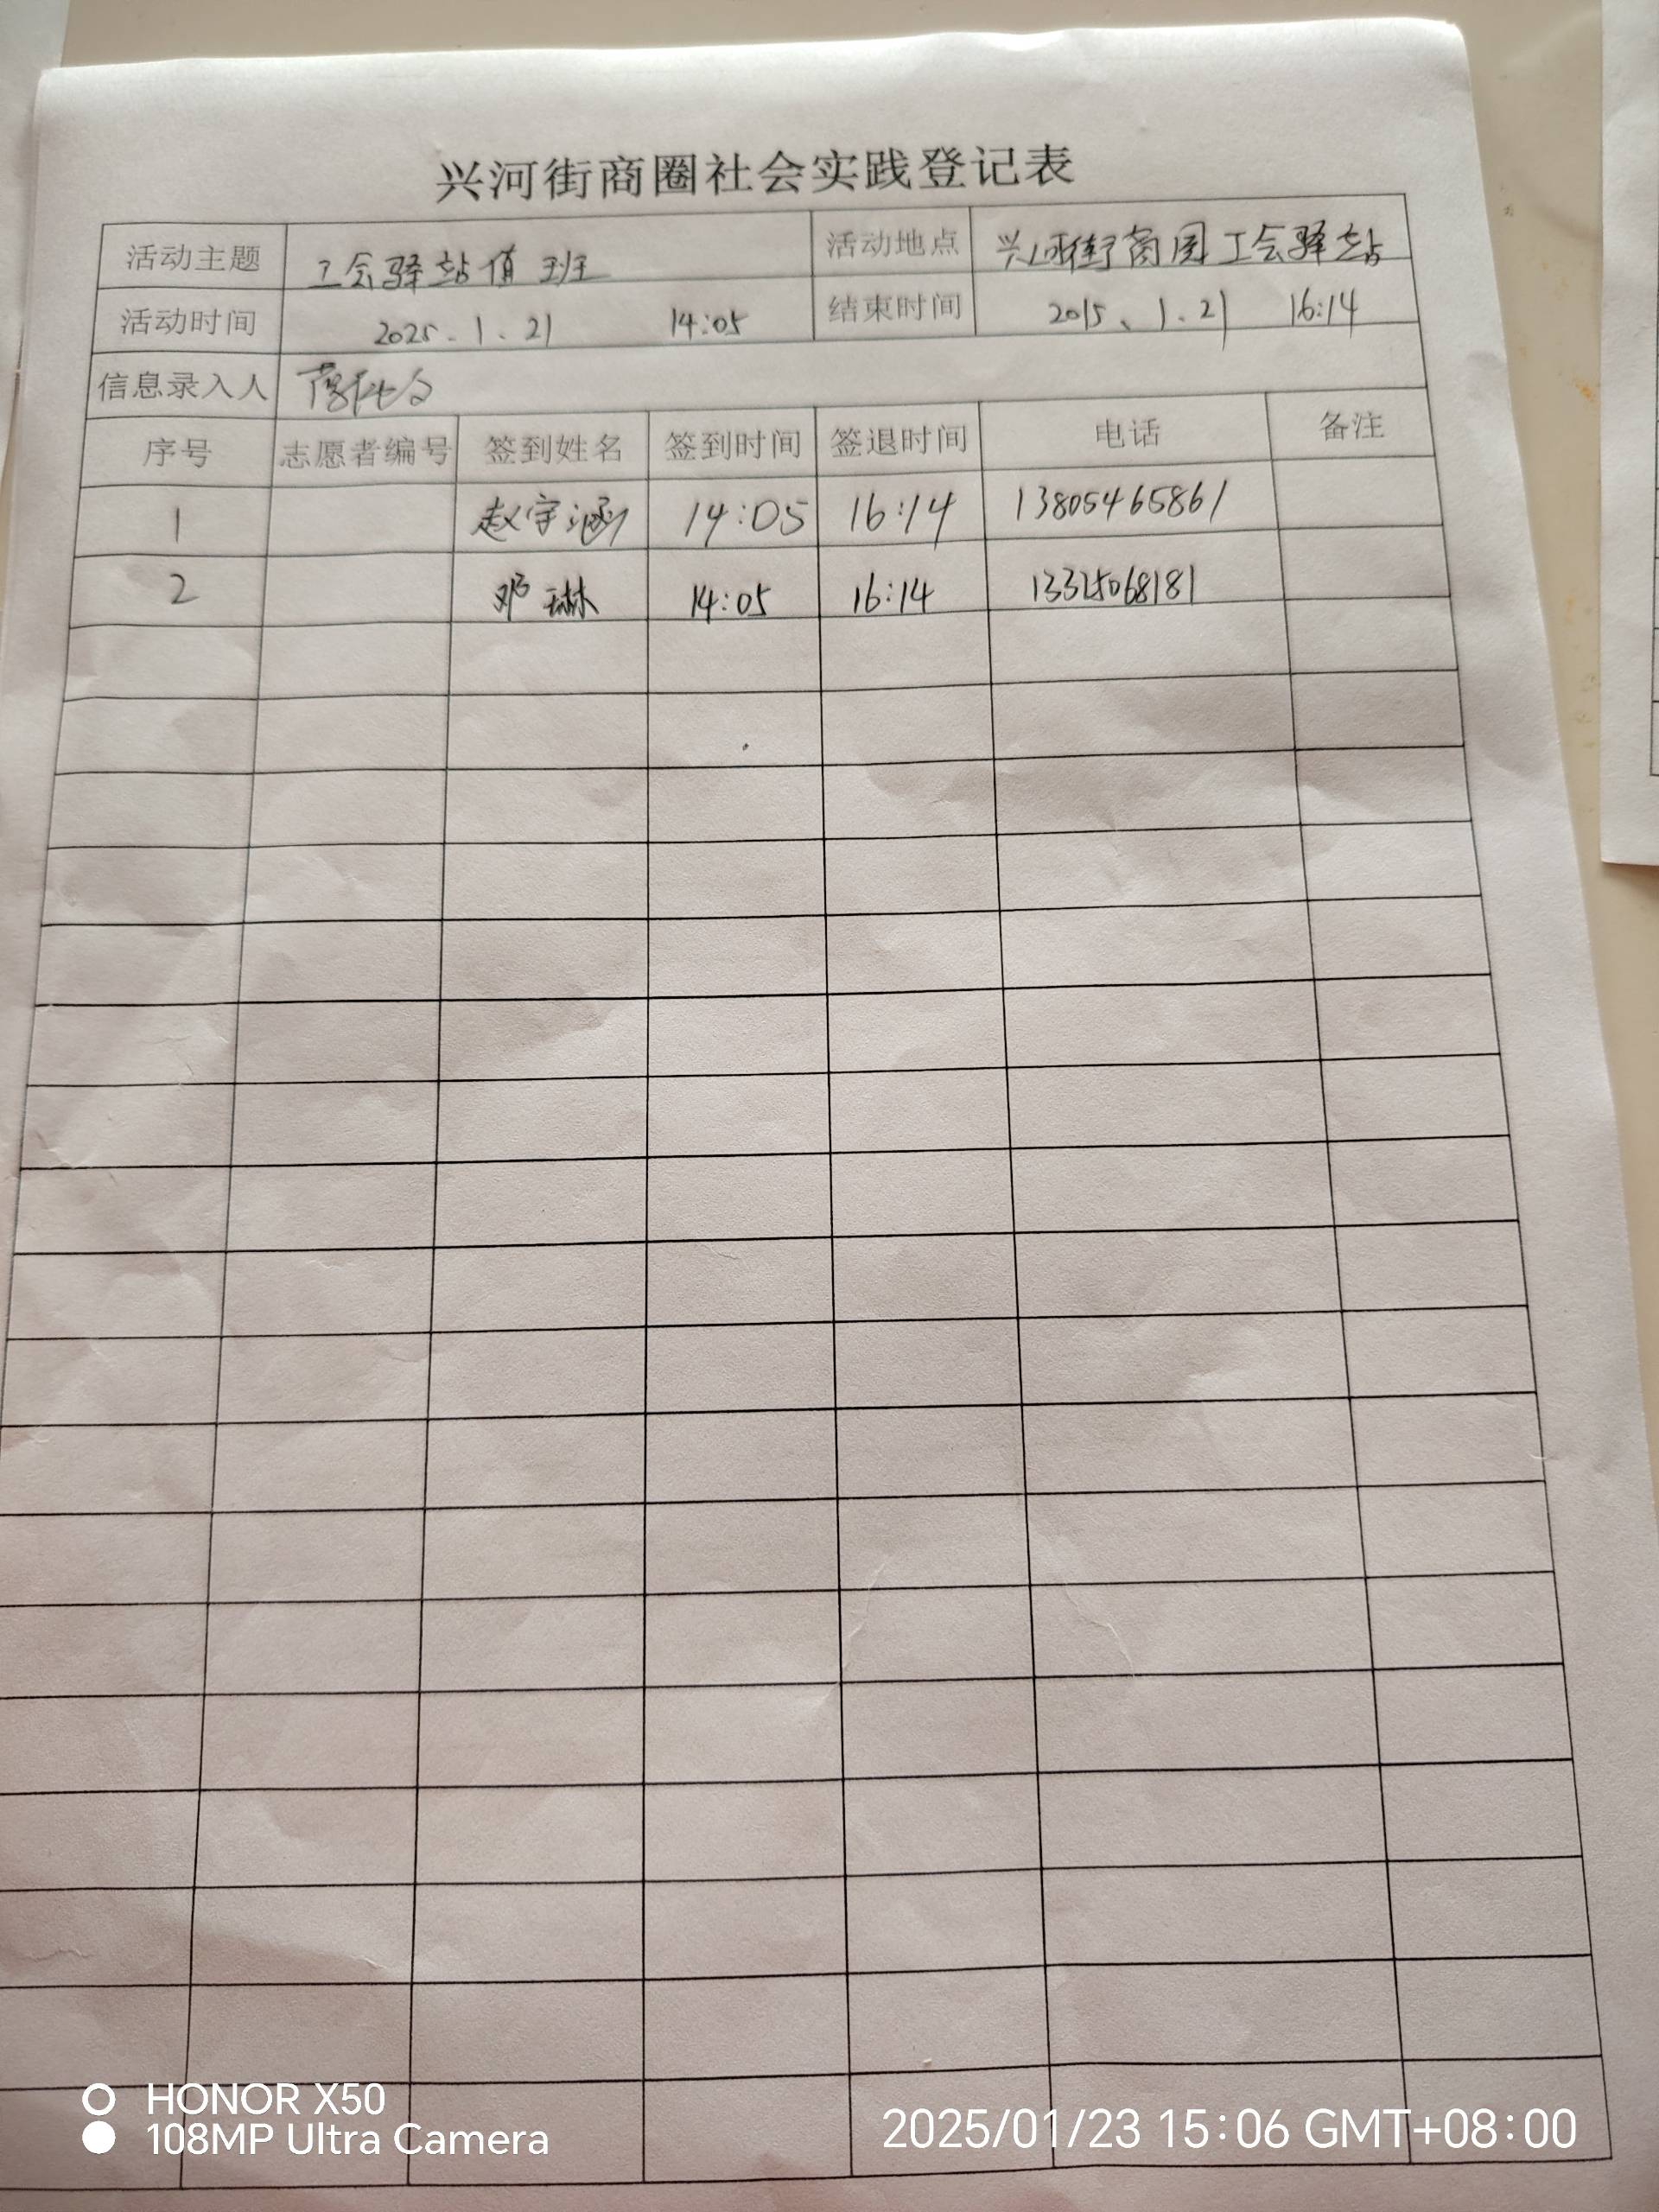 兴河街商圈社会实践登记表
活动主题 工会驿站值班 活动地点 兴河街商圈工会驿站
活动时间 2025.1.21 14:05 结束时间 2015、1.21 16:14
信息录入人
序号 志愿者编号 签到姓名 签到时间 签退时间 电话 备注
1 赵宇涵 14:05 16:14 13805465861
2 邓琳 14:05 16:14 13325068181
HONOR X50
108MP Ultra Camera
2025/01/23 15:06 GMT+08:00